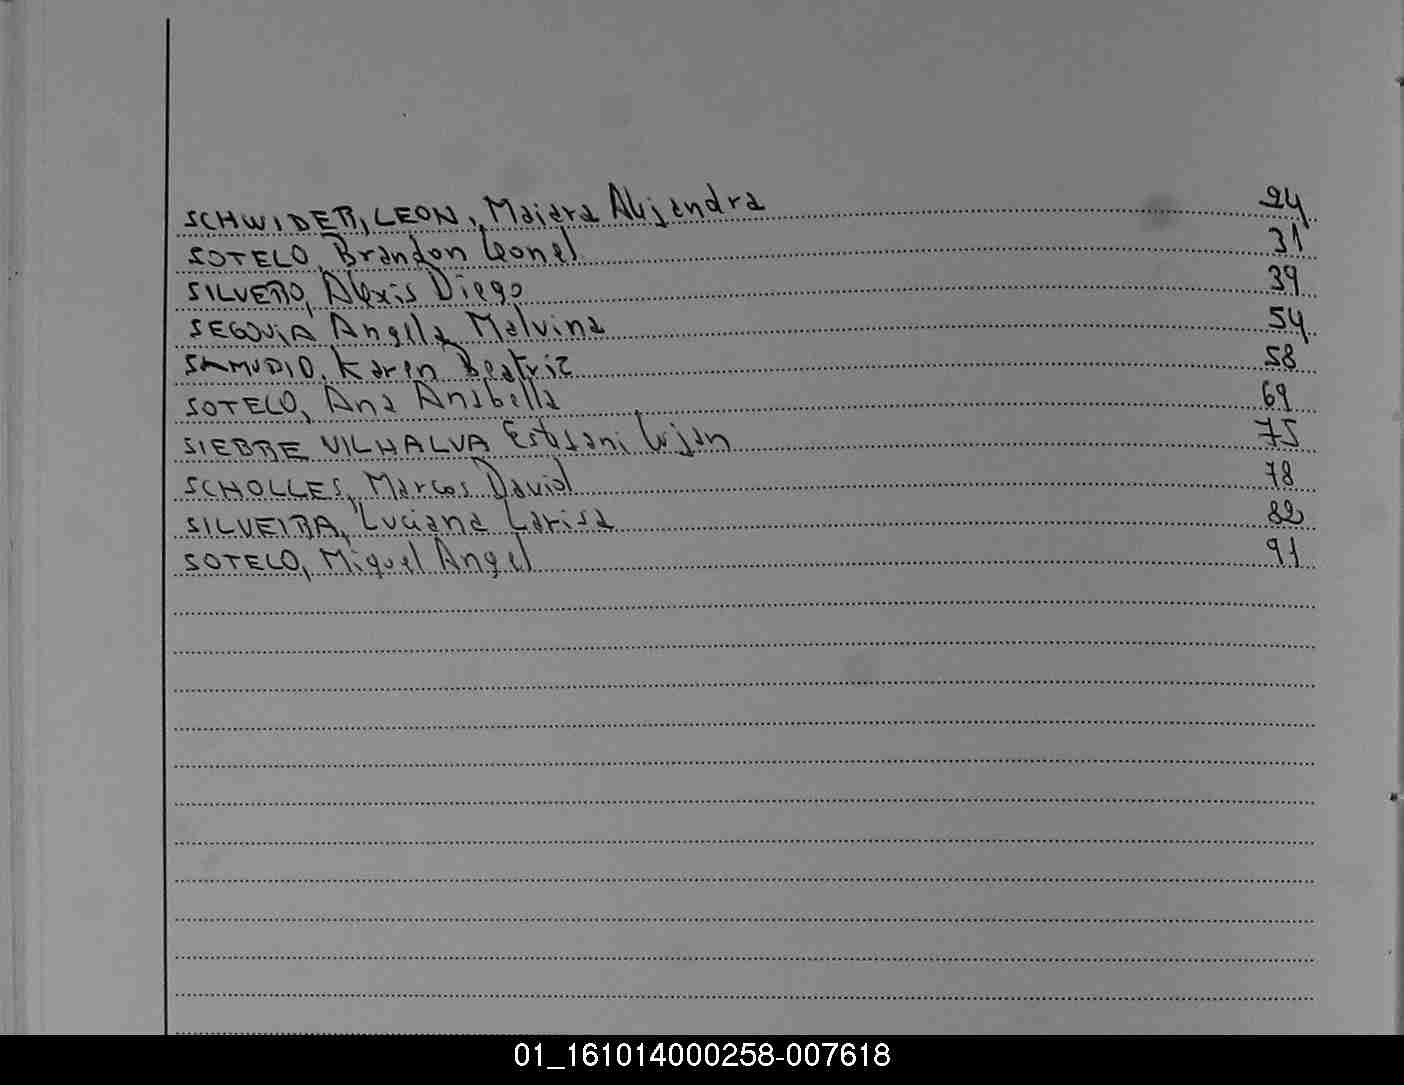 SCHWIDER, LEON, Maiara Alejandra 24
SOTELO, Brandon Leonel 31
SILVERO, Alexis Diego 39
SEGOVIA Angela Malvina 54
SAMUDIO, Karen Beatriz 58
SOTELO, Ana Anabella 69
SIEBRE VILHALVA Estefani Lujan 75
SCHOLLES, Marcos David 78
SILVEIRA, Luciana Larisa 82
SOTELO, Miguel Angel 91
01_161014000258-007618